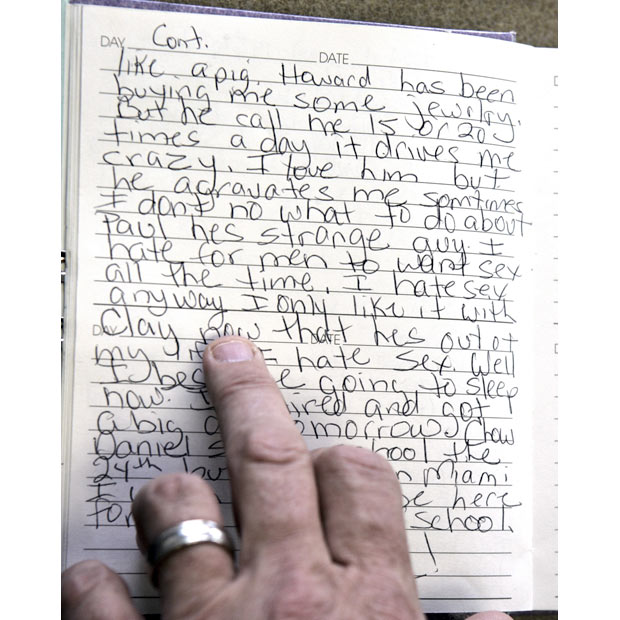 DAY Cont. DATE
like a pig. Howard has been
buying me some jewlry.
But he call me 15 or 20
times a day it drives me
crazy. I love him but
he agravates me somtimes
I dont no what to do about
Paul hes strange guy. I
hate for men to want sex
all the time. I hate sex
anyway I only like it with
Clay now that hes out of
my hate sex. Well
I going to sleep
now. and got
a big tomorrow. Chow
Daniel the
24th Miami
I here
for school.
!